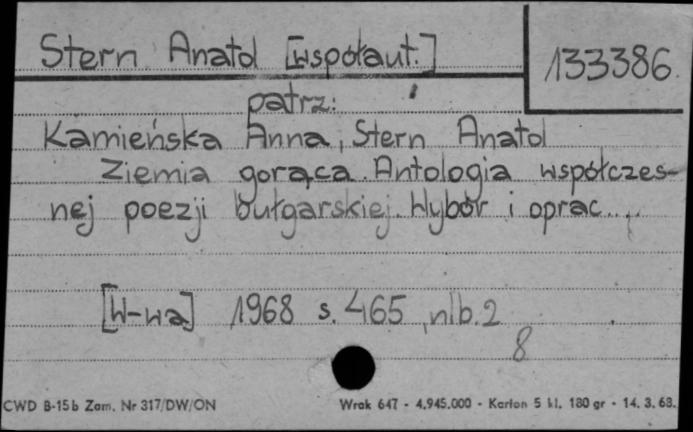 Stern Anatol [współaut.]
133386.
patrz:
Kamieńska Anna, Stern Anatol
Ziemia gorąca. Antologia współczes-
nej poezji bułgarskiej. Wybór i oprac...
[W-wa] 1968 s. 465, nlb. 2
8
CWD B-15b Zam. Nr 317/DW/ON
Wrak 647 - 4.945.000 - Karton 5 kl. 180 gr - 14. 3. 68.